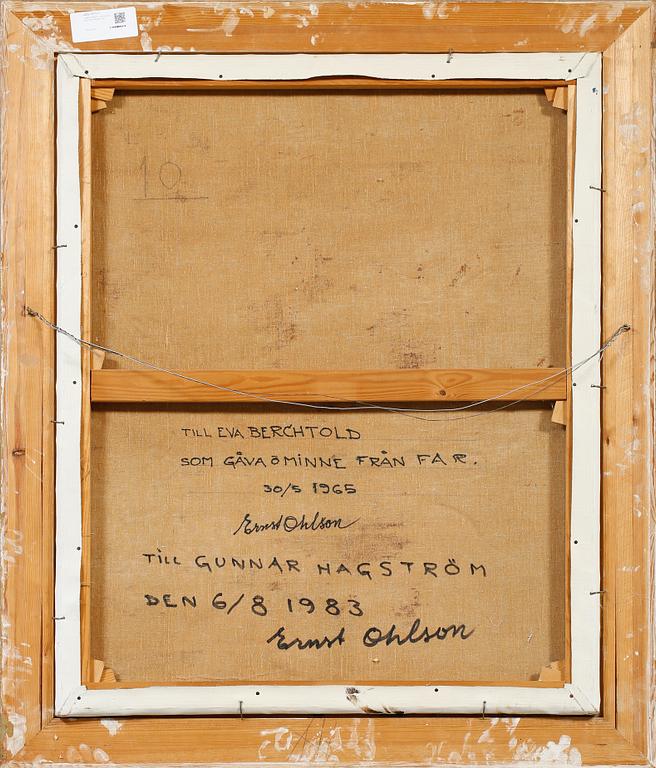 10
TILL EVA BERCHTOLD
SOM GÅVA O MINNE FRÅN FAR.
30/5 1965
Ernst Ohlson
TILL GUNNAR HAGSTRÖM
DEN 6/8 1983
Ernst Ohlson